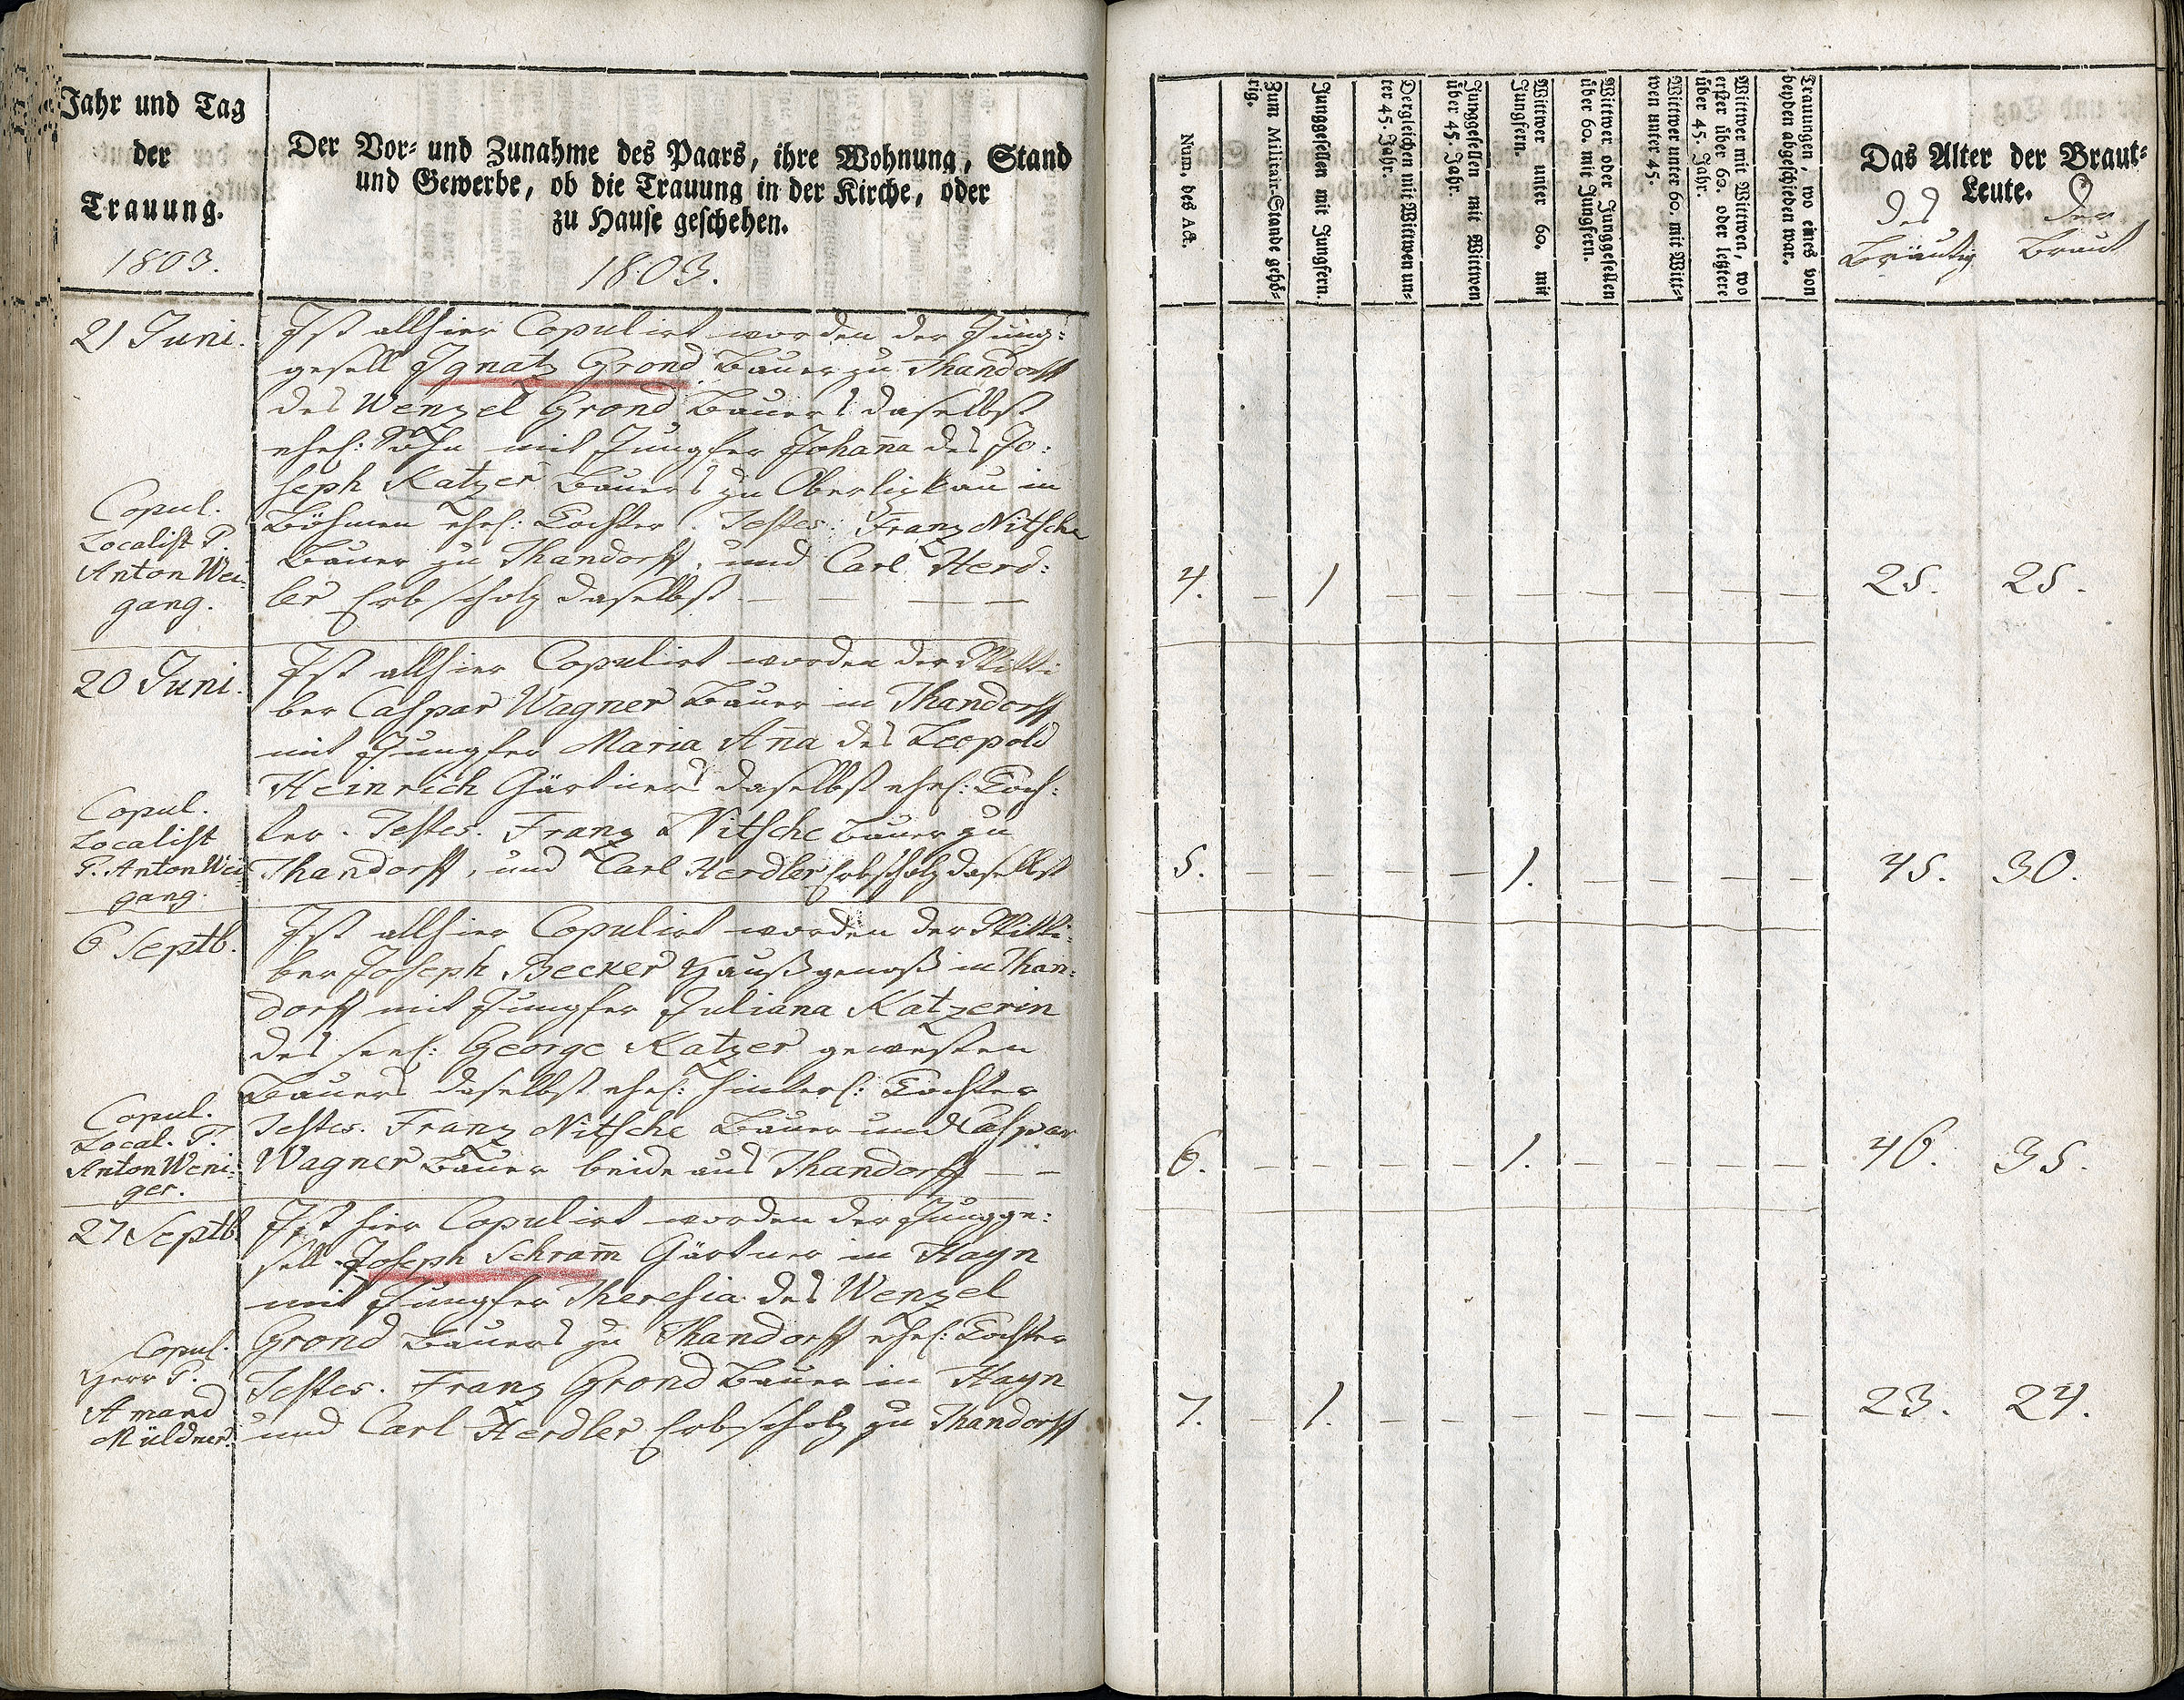 Jahr und Tag
der
Trauung.
1803.
Der Vor- und Zunahme des Paars, ihre Wohnung, Stand
und Gewerbe, ob die Trauung in der Kirche, oder
zu Hause geschehen.
1803.
21 Juni.
Ist allhier Copulirt worden der Jung:
gesell Ignatz Grond Bauer zu Thandorff
des Wenzel Grond Bauers daselbst
ehel: Sohn mit Jungfer Johana des Jo:
seph Katzer Bauers zu Oberlipkau in
Böhmen ehel: Tochter. Testes: Franz Nitsche
Bauer zu Thandorff, und Carl Herd:
ler Erbscholz daselbst — — — —
Copul.
Localist P.
Anton Wei:
gang.
20 Juni.
Ist allhier Copulirt worden der Witti
ber Caspar Wagner Bauer in Thandorff
mit Jungfer Maria Ana des Leopold
Heinrich Gärtners daselbst ehel: Toch:
ter. Testes. Franz Nitsche Bauer zu
Thandorff, und Carl Herdler Erbscholz daselbst
Copul.
Localist
P. Anton Wei
gang.
6 Septb.
Ist allhier Copulirt worden der Witti:
ber Joseph Becker Haußgenoß in Than:
dorff mit Jungfer Juliana Katzerin
des seel: George Katzer gewesten
Bauers daselbst ehel: hinterl: Tochter
Testes. Franz Nitsche Bauer und Caspar
Wagner Bauer beide aus Thandorff — —
Copul.
Local. P.
Anton Weni:
ger.
27 Septb.
Ist hier Copulirt worden der Jungge:
sell Joseph Schram Gärtner in Hayn
mit Jungfer Theresia des Wenzel
Grond Bauers zu Thandorff ehel: Tochter
Testes. Franz Grond Bauer in Hayn
und Carl Herdler Erbscholz zu Thandorff
Copul.
Herr P.
Amand
Müldner.
Num. des Act.
Zum Militair-Stande gehö-
rig.
Junggesellen mit Jungfern.
Dergleichen mit Wittwen un-
ter 45. Jahr.
Junggesellen mit Wittwen
über 45. Jahr.
Wittwer unter 60. mit
Jungfern.
Wittwer oder Junggesellen
über 60. mit Jungfern.
Wittwer unter 60. mit Witt-
wen unter 45.
Wittwer mit Wittwen, wo
erster über 60. oder letztere
über 45. Jahr.
Trauungen, wo eines von
beyden abgeschieden war.
Das Alter der Braut-
Leute.
des
Bräutig
der
Braut
4. – 1 – – – – – – – 25. 25.
5. – – – – 1. – – – – 45. 30.
6. – – – – 1. – – – – 46. 35.
7. – 1. – – – – – – – 23. 24.